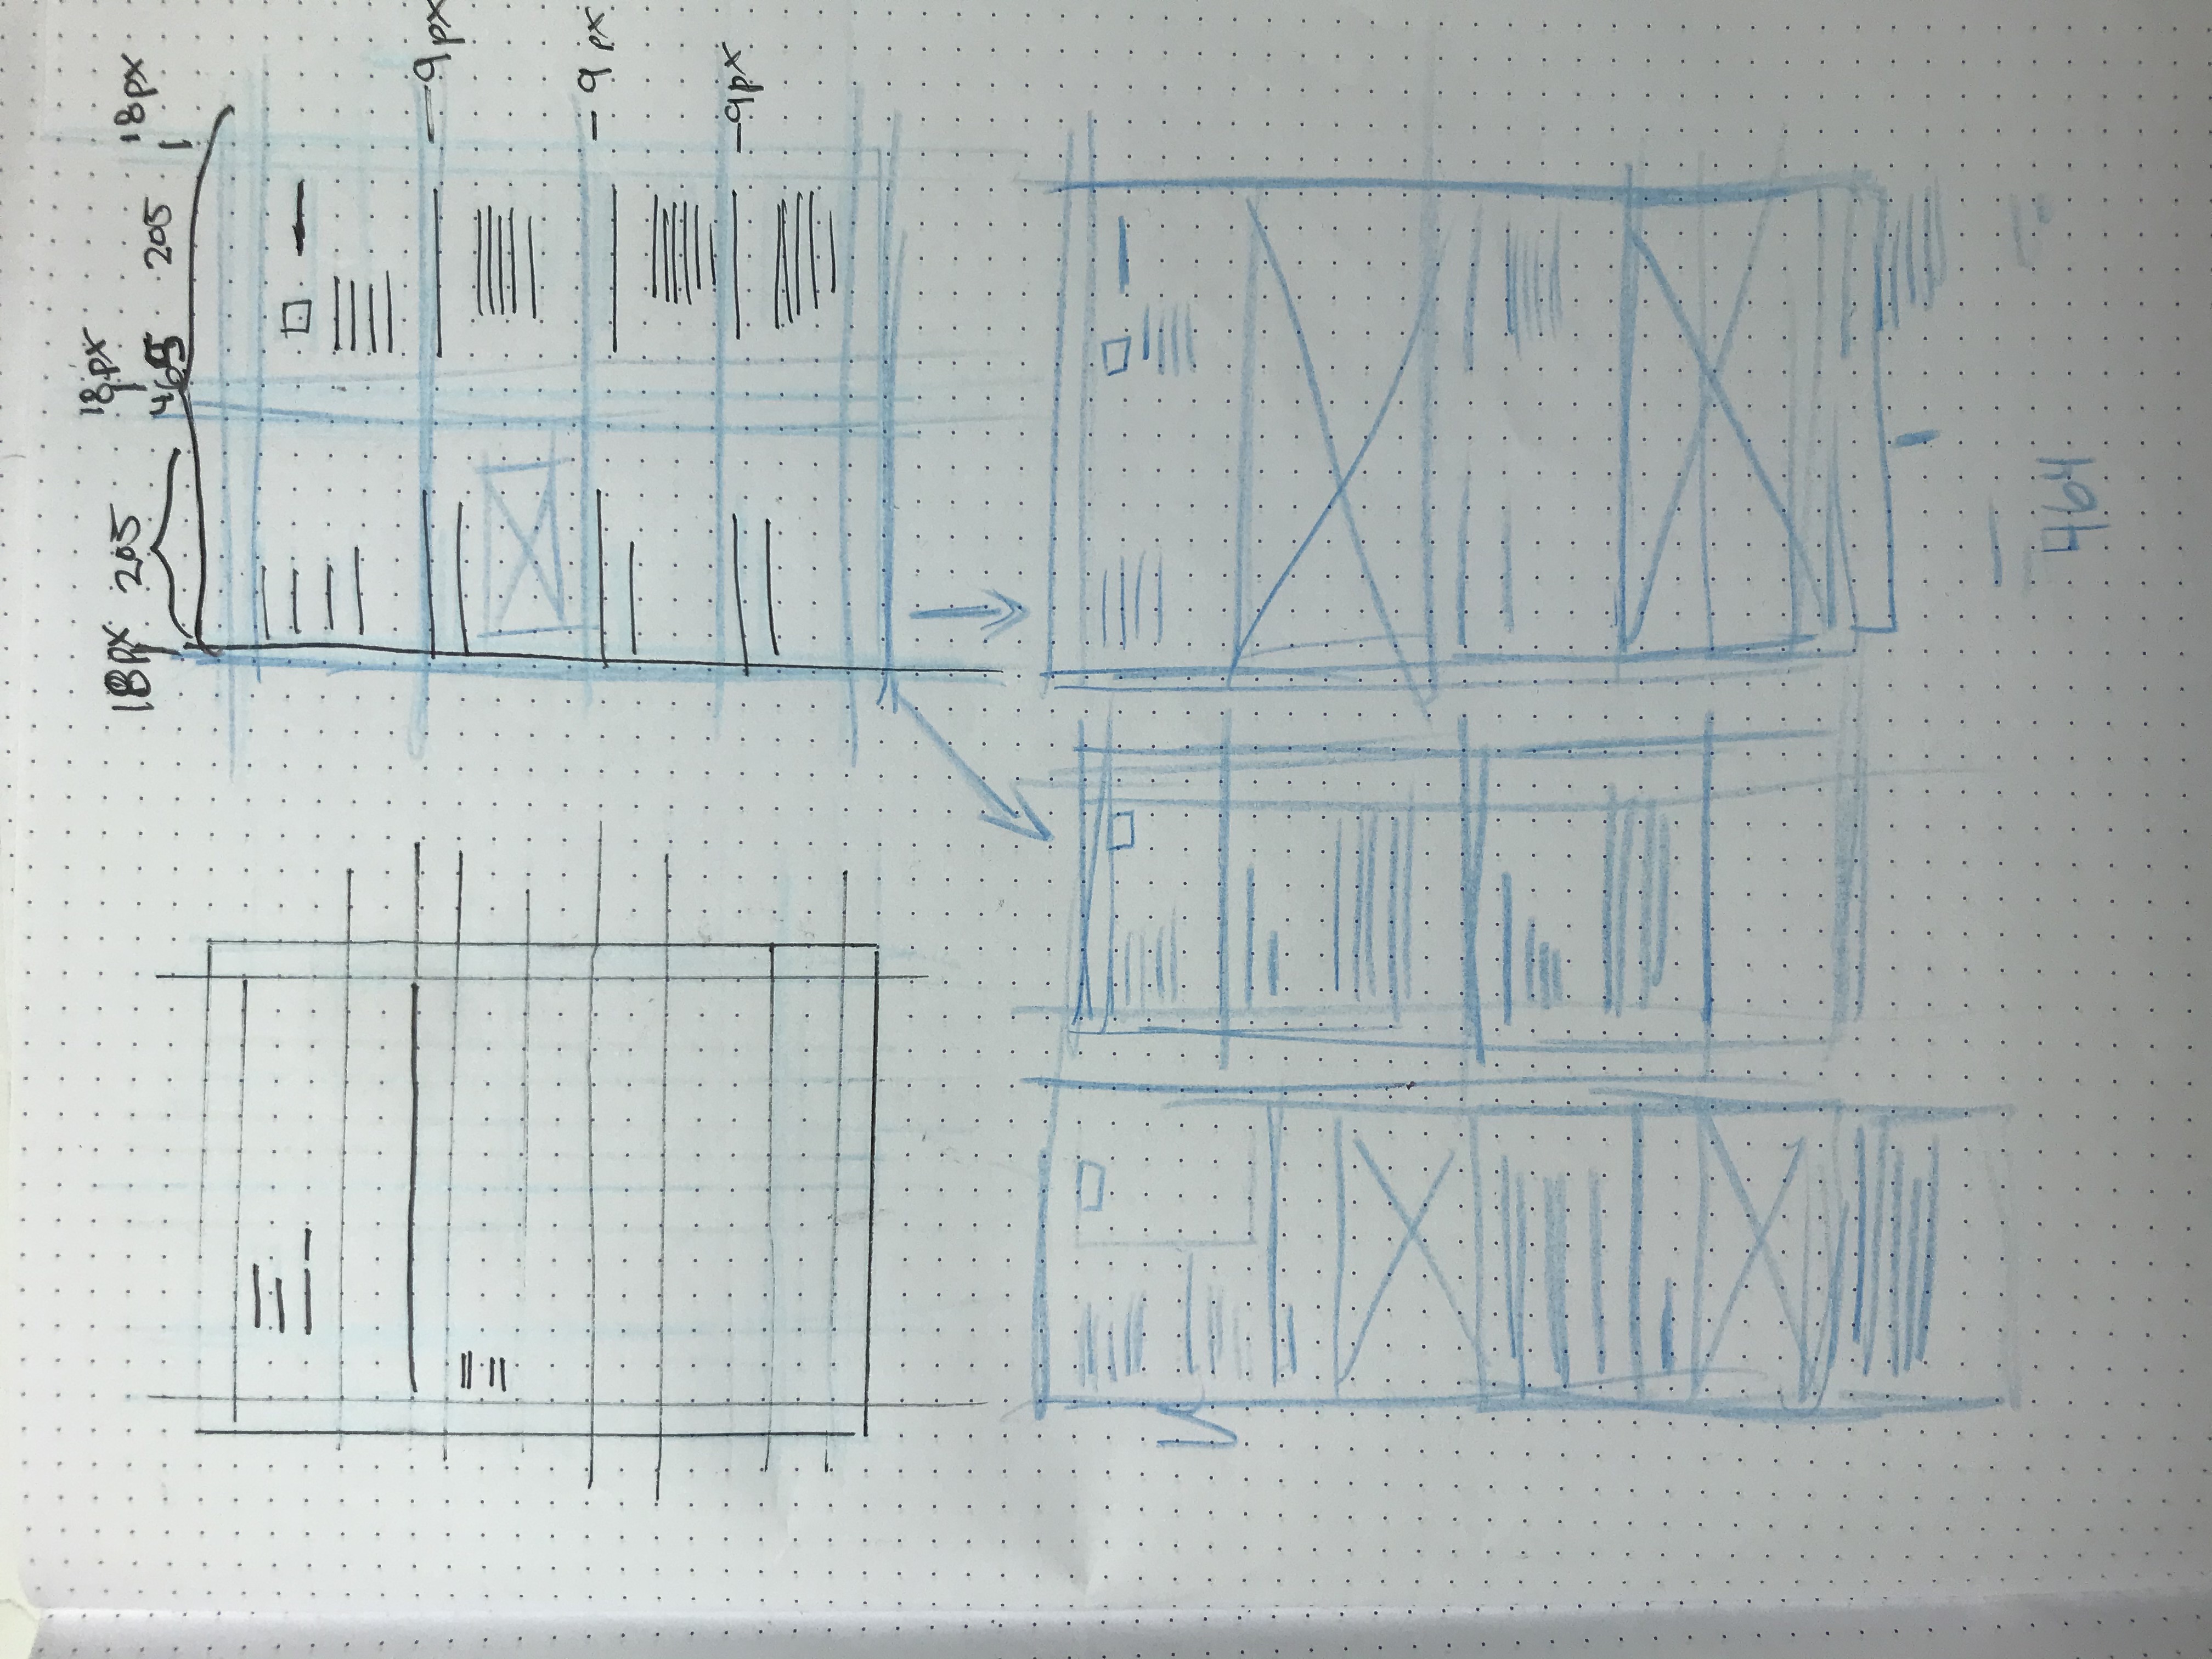 18px 205 18px 205 18px
465
–9px
– 9px
–9px
464